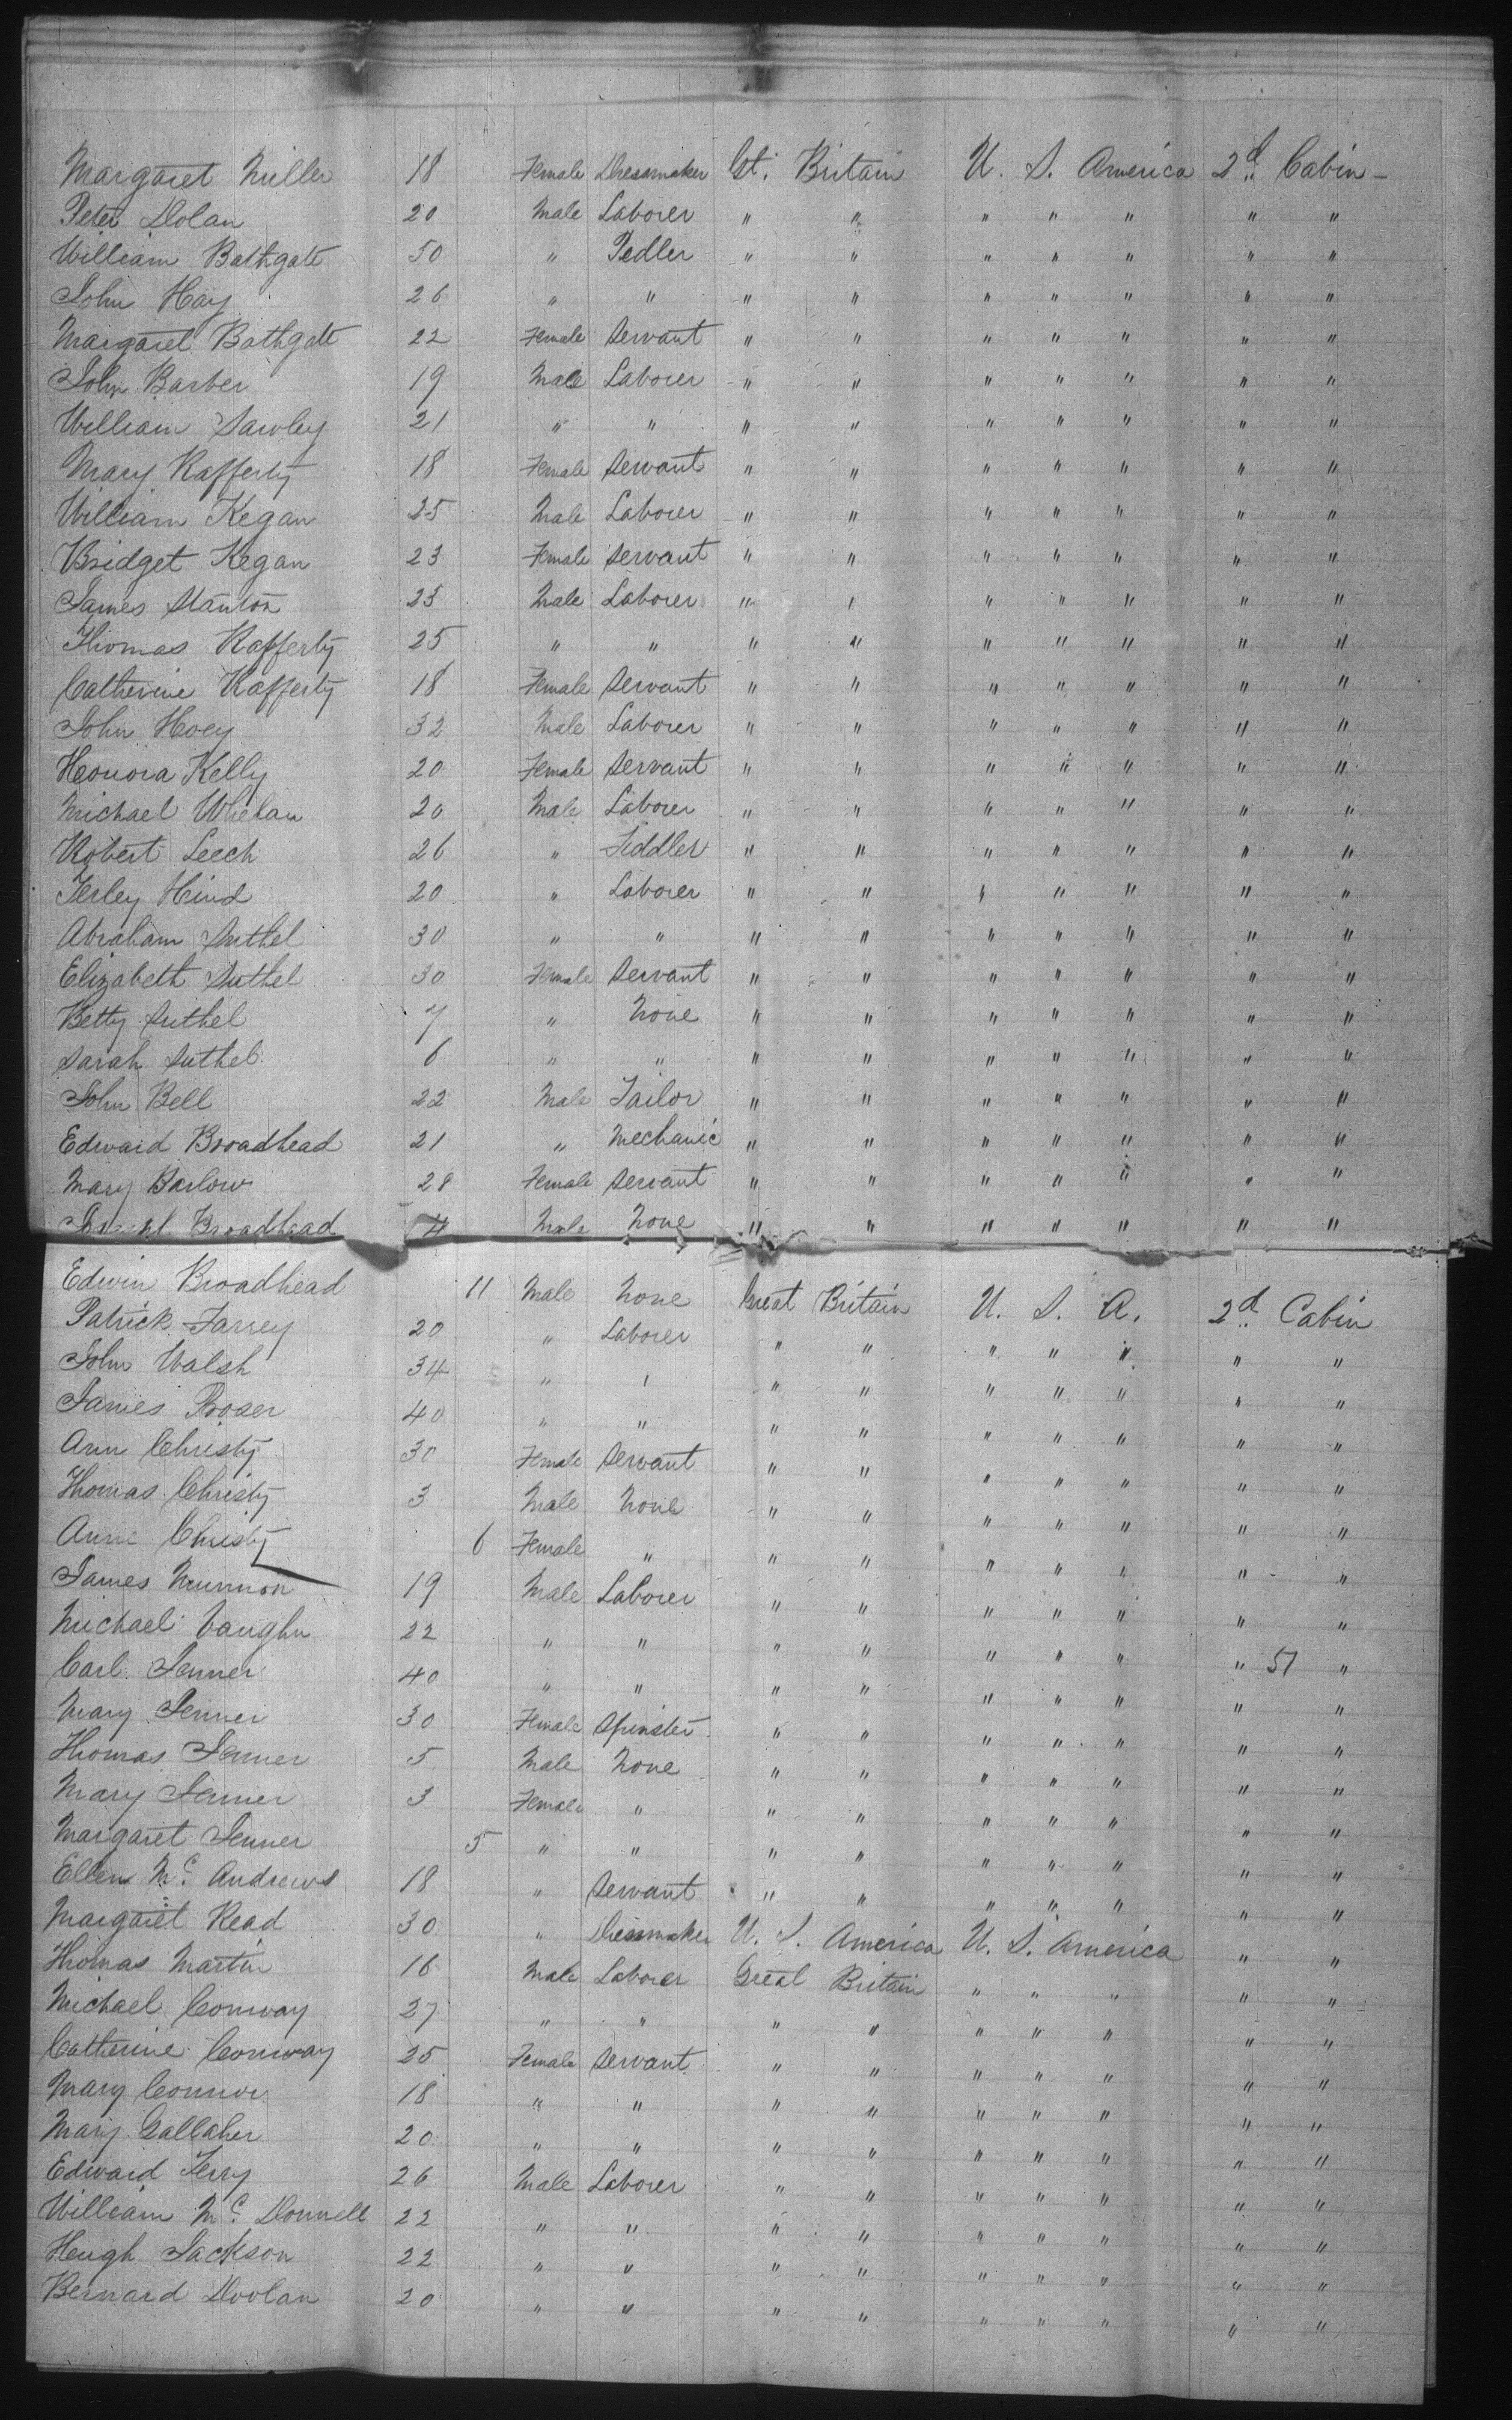 Margaret Miller 18 Female Dressmaker Gt. Britain U. S. America 2d Cabin -
Peter Dolan 20 Male Laborer " " " " " " "
William Bathgate 50 " Pedler " " " " " " "
John Hay 26 " " " " " " " " "
Margaret Bathgate 22 Female Servant " " " " " " "
John Barber 19 Male Laborer " " " " " " "
William Sawley 21 " " " " " " " " "
Mary Rafferty 18 Female Servant " " " " " " "
William Kegan 25 Male Laborer " " " " " " "
Bridget Kegan 23 Female Servant " " " " " " "
James Stanton 23 Male Laborer " " " " " " "
Thomas Rafferty 25 " " " " " " " " "
Catherine Rafferty 18 Female Servant " " " " " " "
John Hoey 32 Male Laborer " " " " " " "
Honora Kelly 20 Female Servant " " " " " " "
Michael Whelan 20 Male Laborer " " " " " " "
Robert Leech 26 " Fiddler " " " " " " "
Ferley Hind 20 " Laborer " " " " " " "
Abraham Suthel 30 " " " " " " " " "
Elizabeth Suthel 30 Female Servant " " " " " " "
Betty Suthel 7 " None " " " " " " "
Sarah Suthel 6 " " " " " " " " "
John Bell 22 Male Tailor " " " " " " "
Edward Broadhead 21 " Mechanic " " " " " " "
Mary Barlow 28 Female Servant " " " " " " "
Broadhead 4 Male None " " " " " " "
Edwin Broadhead 11 Male None Great Britain U. S. A. 2d Cabin
Patrick Farrey 20 " Laborer " " " " " " "
John Walsh 34 " " " " " " " " "
James Proser 40 " " " " " " " " "
Ann Christy 30 Female Servant " " " " " " "
Thomas Christy 3 Male None " " " " " " "
Anne Christy 6 Female " " " " " " " "
James Munnon 19 Male Laborer " " " " " " "
Michael Vaughn 22 " " " " " " " " 51 "
Carl Jenner 40 " " " " " " " " "
Mary Jenner 30 Female Spinster " " " " " " "
Thomas Jenner 5 Male None " " " " " " "
Mary Jenner 3 Female " " " " " " " "
Margaret Jenner 5 " " " " " " " " "
Ellen Mc Andrews 18 " Servant " " " " " " "
Margaret Read 30 " Dressmaker U. S. America U. S. America " "
Thomas Martin 16 Male Laborer Great Britain " " " " "
Michael Conway 27 " " " " " " " " "
Catherine Conway 25 Female Servant " " " " " " "
Mary Connor 18 " " " " " " " " "
Mary Gallaher 20 " " " " " " " " "
Edward Terry 26 Male Laborer " " " " " " "
William Mc Donnell 22 " " " " " " " " "
Hugh Jackson 22 " " " " " " " " "
Bernard Doolan 20 " " " " " " " " "